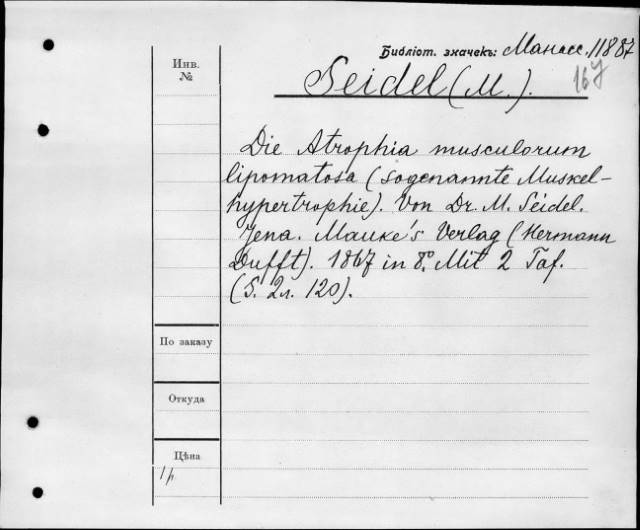 Библіот. значекъ: Манасс. 11887
167
Инв.
№
Seidel (M.).
Die Atrophia musculorum
lipomatosa (sogenannte Muskel-
hypertrophie). Von Dr. M. Seidel.
Jena. Mauke's Verlag (Hermann
Dufft). 1867 in 8°. Mit 2 Taf.
(S. 2л. 120).
По заказу
Откуда
Цѣна
1р